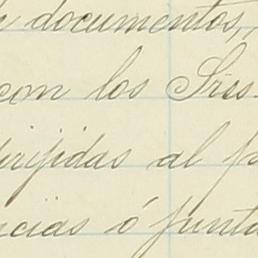 documentos,
con los Sres.
dirijidas al
ncias ó junta